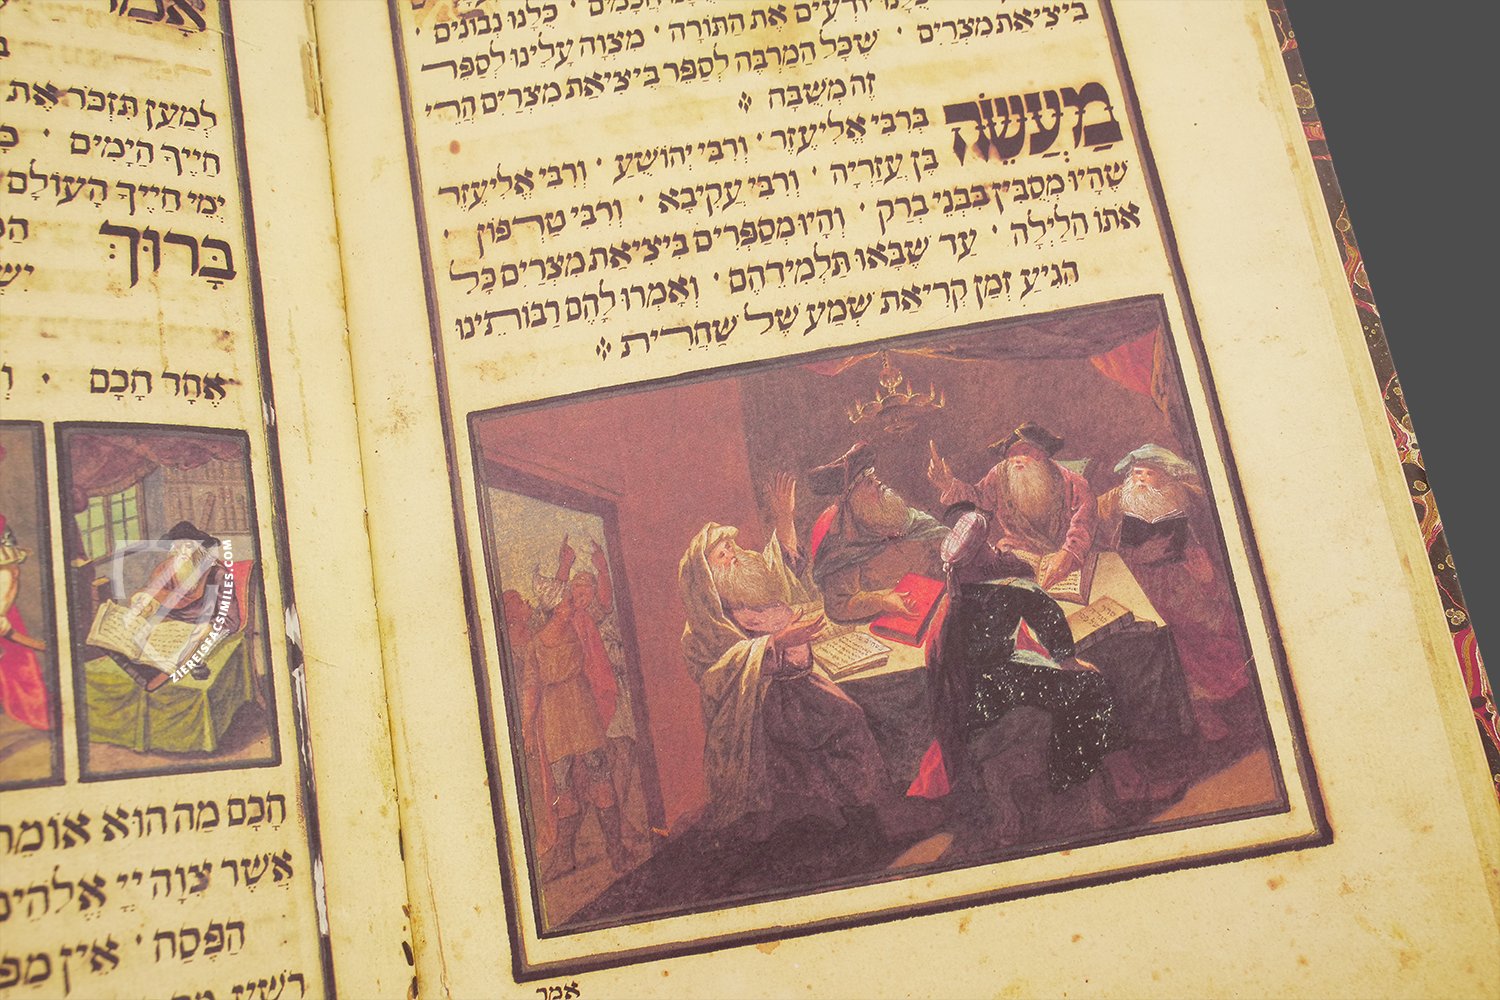 כלנו יודעים את התורה · מצוה עלינו לספר
ביציאת מצרים · שכל המרבה לספר ביציאת מצרים הרי
זה משבח
מַעֲשֶׂה ברבי אליעזר · ורבי יהושע · ורבי אליעזר
בן עזריה · ורבי עקיבא · ורבי טרפון ·
שהיו מסבין בבני ברק · והיו מספרים ביציאת מצרים כל
אותו הלילה · עד שבאו תלמידיהם · ואמרו להם רבותינו
הגיע זמן קריאת שמע של שחרית
אמר
למען תזכר את
חייך הימים ·
ימי חייך העולם
ברוך
אחד חכם ·
חכם מה הוא אומר
אשר צוה יי אלהינו
הפסח · אין
ZIEREISFACSIMILES.COM